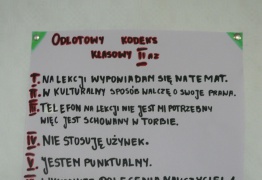 ODLOTOWY KODEKS
KLASOWY II az
I. NA LEKCJI WYPOWIADAM SIĘ NA TEMAT.
II. W KULTURALNY SPOSÓB WALCZĘ O SWOJE PRAWA.
III. TELEFON NA LEKCJI NIE JEST MI POTRZEBNY
WIĘC JEST SCHOWANY W TORBIE.
IV. NIE STOSUJĘ UŻYWEK.
V. JESTEM PUNKTUALNY.